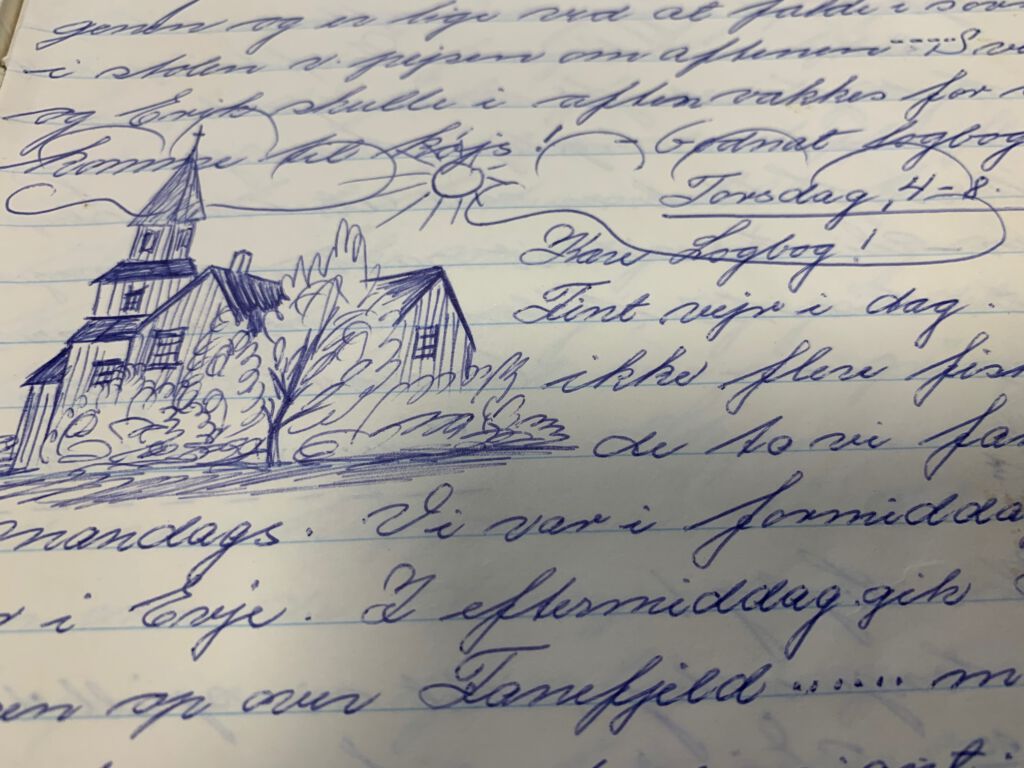 genen og er lige ved at falde i søv
i stolen v. pejsen om aftenen ..... Sve
og Erik skulle i aften vækkes for
komme til køjs! Godnat Logbog
Torsdag, 4-8.
Kære Logbog!
Fint vejr i dag.
ikke flere fisk
de to vi fa
mandags. Vi var i formidda
i Evje. I eftermiddag gik
en op over Fanefjeld ...... m